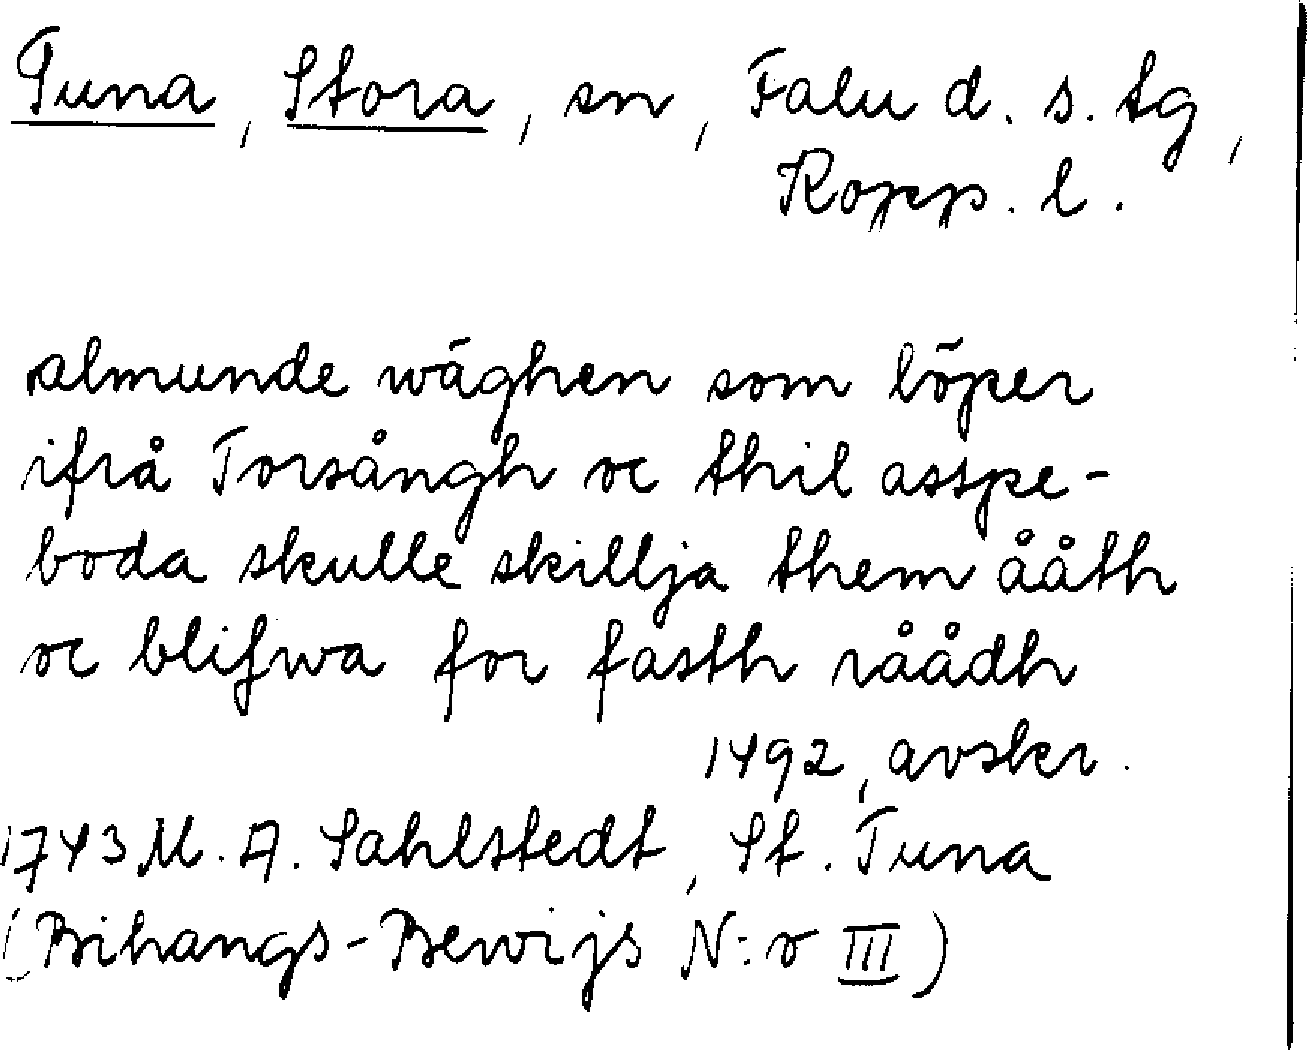 Tuna, Stora, sn, Falu d. s. tg,
Kopp. l.
almunde wäghen som löper
ifrå Torsångh oc thil asspe-
boda skulle skillja them ååth
oc blifwa for fasth råådh
1492, avskr.
1743 M. A. Sahlstedt, St. Tuna
(Bihangs-Bewijs N:o III)